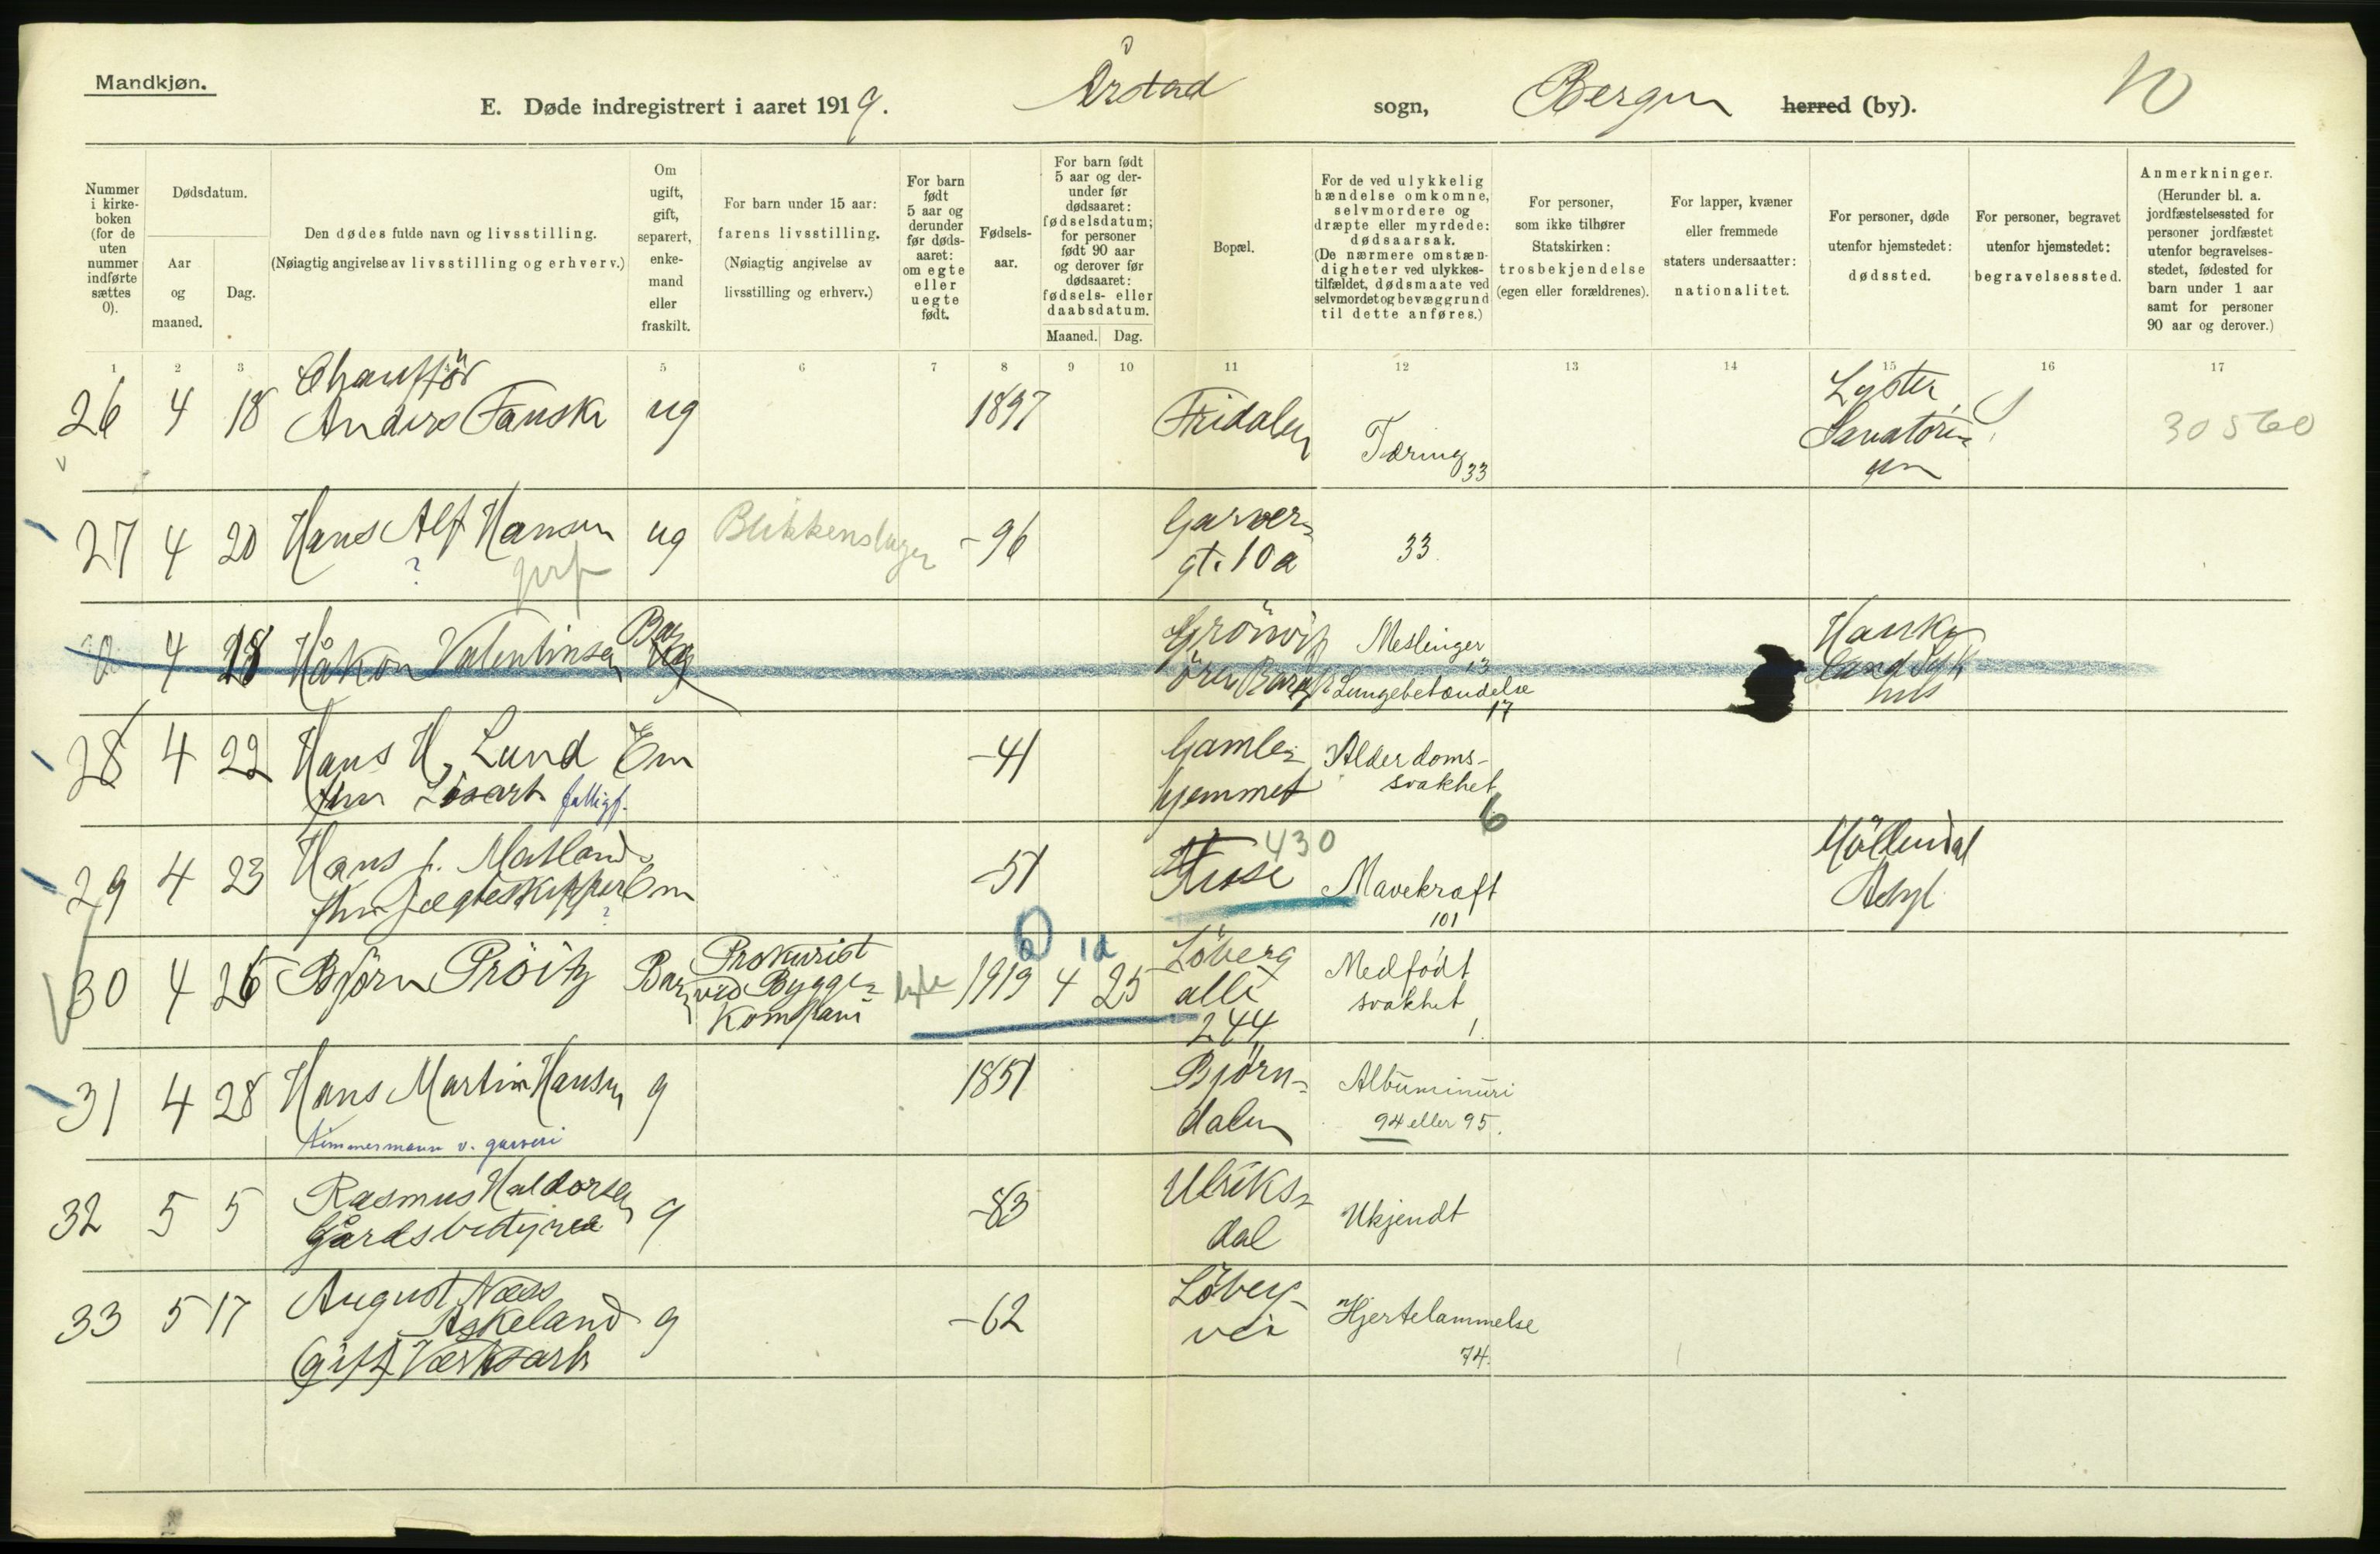 Mandkjøn.
E. Døde indregistrert i aaret 1919. Årstad sogn, Bergen herred (by). 10
Nummer i kirke-boken (for de uten nummer indførte sættes 0).
Dødsdatum.
Aar og maaned.
Dag.
Den dødes fulde navn og livsstilling.
(Nøiagtig angivelse av livsstilling og erhverv.)
Om ugift, gift, separert, enke-mand eller fraskilt.
For barn under 15 aar: farens livsstilling.
(Nøiagtig angivelse av livsstilling og erhverv.)
For barn født 5 aar og derunder før døds-aaret: om egte eller uegte født.
Fødsels-aar.
For barn født 5 aar og der-under før dødsaaret: fødselsdatum; for personer født 90 aar og derover før dødsaaret: fødsels- eller daabsdatum.
Maaned. Dag.
Bopæl.
For de ved ulykkelig hændelse omkomne, selvmordere og dræpte eller myrdede: dødsaarsak.
(De nærmere omstæn-digheter ved ulykkes-tilfældet, dødsmaate ved selvmordet og bevæggrund til dette anføres.)
For personer, som ikke tilhører Statskirken: trosbekjendelse (egen eller forældrenes).
For lapper, kvæner eller fremmede staters undersaatter: nationalitet.
For personer, døde utenfor hjemstedet: dødssted.
For personer, begravet utenfor hjemstedet: begravelsessted.
Anmerkninger.
(Herunder bl. a. jordfæstelsessted for personer jordfæstet utenfor begravelses-stedet, fødested for barn under 1 aar samt for personer 90 aar og derover.)
1 2 3 5 6 7 8 9 10 11 12 13 14 15 16 17
Chaufför
26 4 18 Anders Fanske ug 1897 Fridalen Tæring 33 Lyster Sanatorium 30560
27 4 20 Hans Alf Hansen ug Blikkenslager -96 Garver-
? gt. 10a 33
0 4 18 Håkon Valentinsen Barn ug Meslinger 13 Hauke
Lungebetændelse land Syk
17 hus
28 4 22 Hans H. Lund Em -41 Gamle- Alderdoms-
fhv Løsarb fattigf. hjemmet svakhet
6
29 4 23 Hans J. Matland Em -51 430 Mavekræft Möllendal
fhv Jægteskipper ? 101 Asyl
30 4 26 Björn Pröitz Barn Prokurist 1919 4 25 1d Löberg Medfödt
ved Bygge- alle svakhet
Kompani 244 1.
31 4 28 Hans Martin Hansen g 1851 Björn- Albuminuri
tømmermann v. garveri dalen 94 eller 95.
32 5 5 Rasmus Haldorsen g -83 Ulriks- Ukjendt
Gårdsbestyrer dal
33 5 17 August Næss g -62 Löberg- Hjertelammelse
Askeland vei 74.
(gift) Værksarb